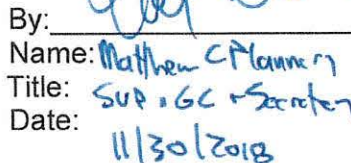 By:
Name: Matthew C Flannery
Title: SVP, GC & Secretary
Date:
11/30/2018